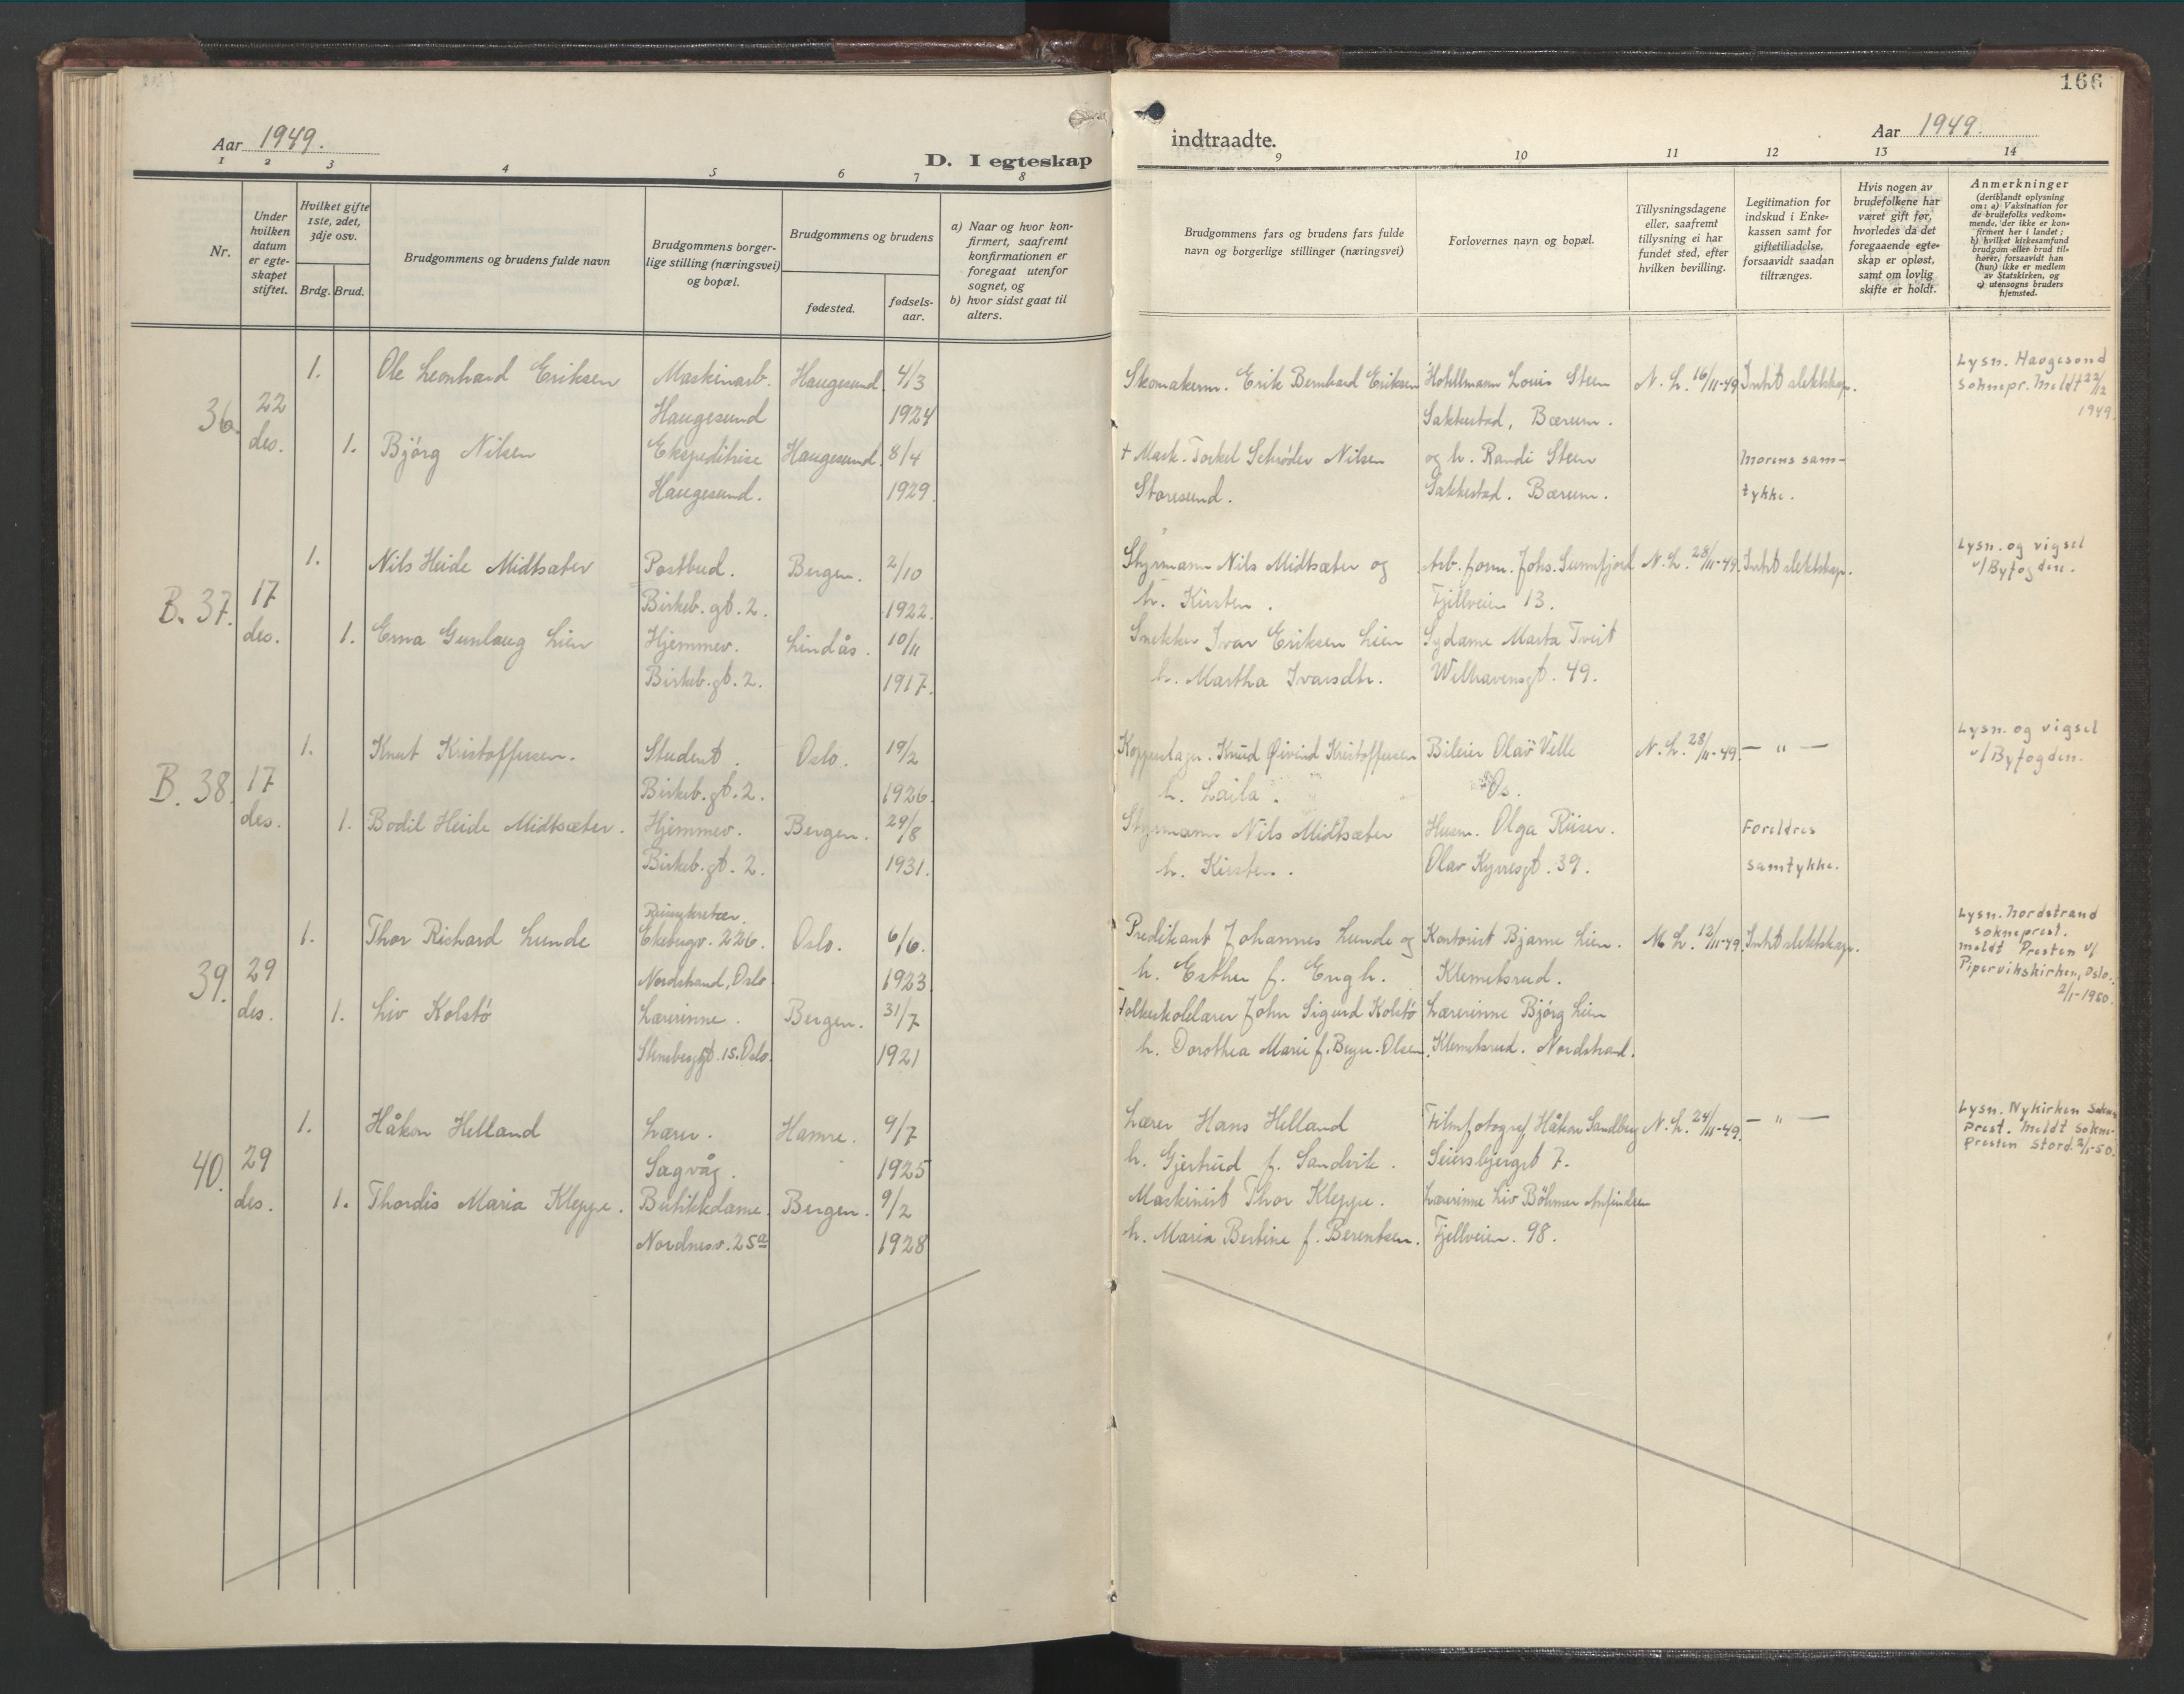 166
Aar 1949.
D. I egteskap
indtraadte.
Aar 1949.
1 2 3 4 5 6 7 8 9 10 11 12 13 14
Nr.
Under hvilken datum er egteskapet stiftet.
Hvilket gifte 1ste, 2det, 3dje osv.
Brdg. Brud.
Brudgommens og brudens fulde navn
Brudgommens borgerlige stilling (næringsvei) og bopæl.
Brudgommens og brudens
fødested.
fødselsaar.
a) Naar og hvor konfirmert, saafremt konfirmationen er foregaat utenfor sognet, og
b) hvor sidst gaat til alters.
Brudgommens fars og brudens fars fulde navn og borgerlige stillinger (næringsvei)
Forlovernes navn og bopæl.
Tillysningsdagene eller, saafremt tillysning ei har fundet sted, efter hvilken bevilling.
Legitimation for indskud i Enkekassen samt for giftetilladelse, forsaavidt saadan tiltrænges.
Hvis nogen av brudefolkene har været gift før, hvorledes da det foregaaende egteskap er opløst, samt om lovlig skifte er holdt.
Anmerkninger
(deriblandt oplysning om: a) Vaksination for de brudefolks vedkommende, der ikke er konfirmert her i landet; b) hvilket kirkesamfund brudgom eller brud tilhører, forsaavidt han (hun) ikke er medlem av Statskirken, og c) utensogns bruders hjemsted.
36. 22 des.
1. Ole Leonhard Eriksen Maskinarb. Haugesund. 4/3 Skomakerm. Erik Bernhard Eriksen Hotellmann Louis Steen N. L. 16/11-49. Intet slektskap. Lysn. Haugesund
Haugesund 1924 Sakkestad, Bærum. soknepr. Meldt 22/12 1949.
1. Bjørg Nilsen Ekspeditrise Haugesund. 8/4 + Mask. Torkel Schrøder Nilsen og h. Randi Steen Morens sam-
Haugesund. 1929. Storesund. Sakkestad. Bærum. tykke.
B. 37. 17 des.
1. Nils Heide Midtsæter Postbud. Bergen. 2/10 Styrmann Nils Midtsæter og Arb. form. Johs. Sunnfjord N. L. 28/11-49. Intet slektskap. Lysn. og vigsel
Birkeb. gt. 2. 1922. h. Kirsten. Fjellveien 13. v/Byfogden.
1. Erna Gunlaug Lien Hjemmev. Lindås. 10/11 Snekker Ivar Eriksen Lien Sydame Marta Tveit
Birkeb. gt. 2. 1917. h. Martha Ivarsdtr. Welhavensgt. 49.
B. 38. 17 des.
1. Knut Kristoffersen. Student. Oslo. 19/2 Knud Øivind Kristoffersen Bileier Olav Velle N. L. 28/11-49. — " — Lysn. og vigsel
Birkeb. gt. 2. 1926. h. Laila. Os. v/Byfogden.
1. Bodil Heide Midtsæter. Hjemmev. Bergen. 29/8 Styrmann Nils Midtsæter Husm. Olga Riiser. Foreldres
Birkeb. gt. 2. 1931. h. Kirsten. Olav Kyrresgt. 39. samtykke.
39. 29 des.
1. Thor Richard Lunde Ekebergv. 226. Oslo. 6/6. Predikant Johannes Lunde og Kontorist Bjarne Lien. M. L. 12/11-49. Intet slektskap. Lysn. Nordstrand
Nordstrand, Oslo. 1923. h. Esther f. Engh. Klemetsrud. sokneprest.
meldt Presten v/
Pipervikskirken, Oslo.
2/1-1950.
1. Liv Kolstø Lærerinne. Bergen. 31/7 Folkeskolelærer John Sigurd Kolstø Lærerinne Bjørg Lien
Stensberggt. 15. Oslo. 1921 h. Dorothea Marie f. Beyer-Olsen. Klemetsrud. Nordstrand.
40. 29 des.
1. Håkon Helland Lærer. Hamre. 9/7 Lærer Hans Helland Filmfotograf Håkon Sandberg N. L. 24/11-49. — " — Lysn. Nykirken Sokne-
Sagvåg. 1925 h. Gjertrud f. Sandvik. Seiersbjergst 7. Prest. Meldt sokne-
presten Stord. 2/1-50.
1. Thordis Maria Kleppe. Butikkdame. Bergen. 9/2 Maskinist Thor Kleppe. Lærerinne Liv Böhmer
Nordnesv. 25a 1928 h. Maria Bertine f. Berentsen. Fjellveien. 98.